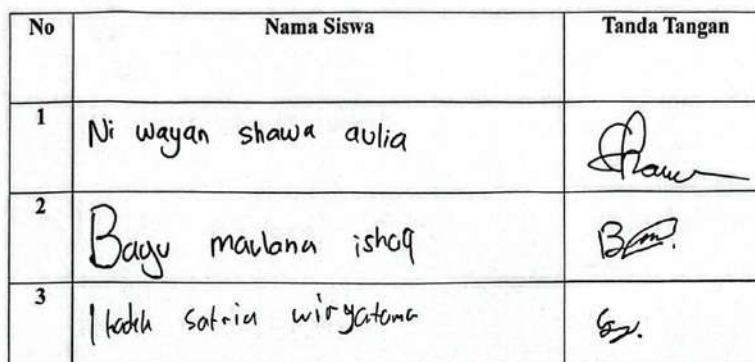 No Nama Siswa Tanda Tangan
1 Ni wayan shawa aulia
2 Bagu maulana ishaq
3 I kadek satria wiryatama